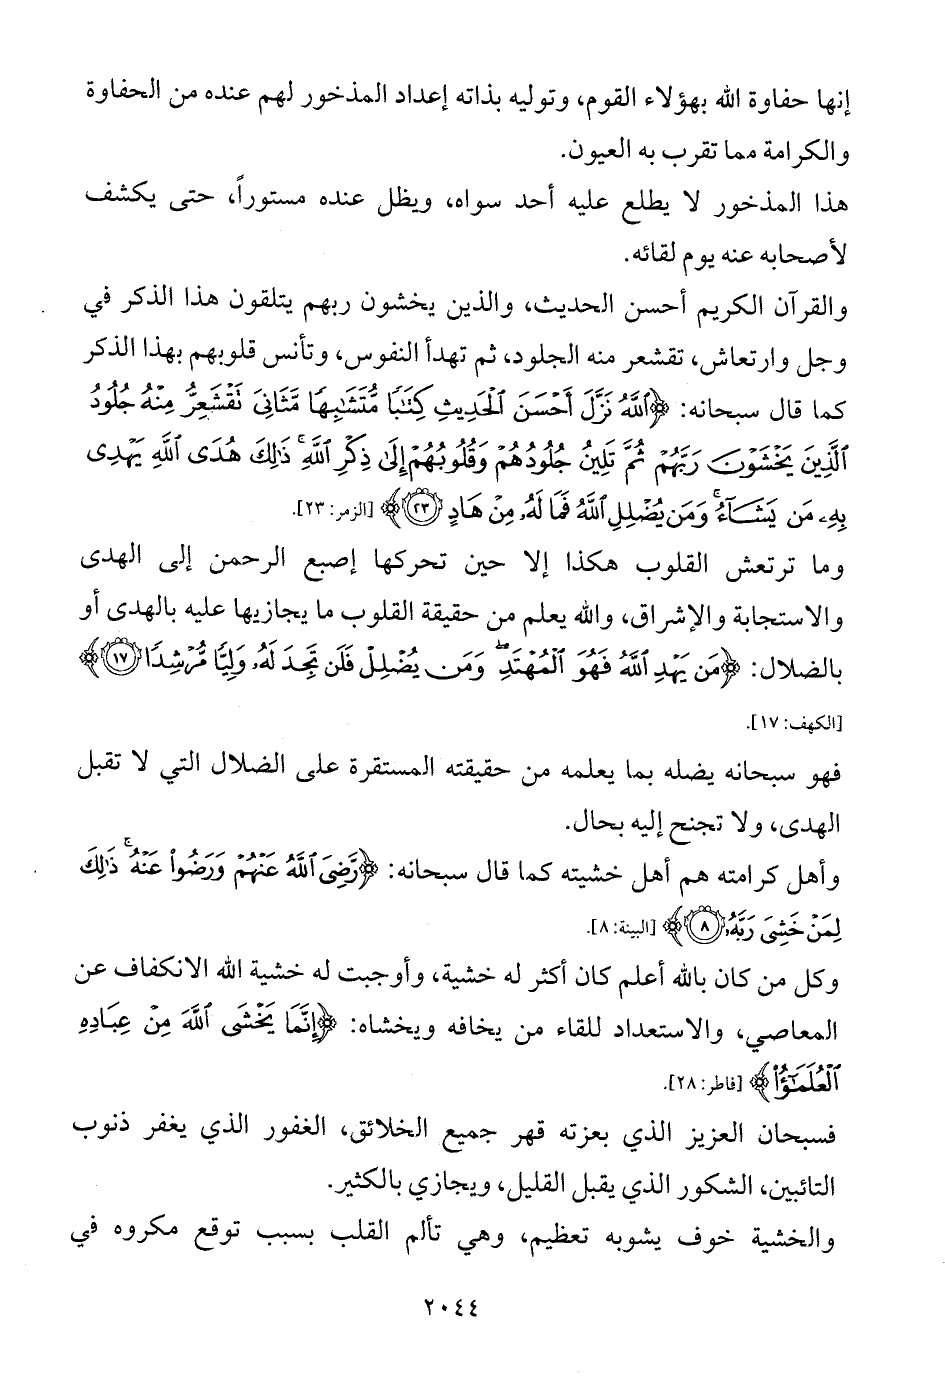 إنها حفاوة الله بهؤلاء القوم، وتوليه بذاته إعداد المذخور لهم عنده من الحفاوة
والكرامة مما تقرب به العيون.
هذا المذخور لا يطلع عليه أحد سواه، ويظل عنده مستوراً، حتى يكشف
لأصحابه عنه يوم لقائه.
والقرآن الكريم أحسن الحديث، والذين يخشون ربهم يتلقون هذا الذكر في
وجل وارتعاش، تقشعر منه الجلود، ثم تهدأ النفوس، وتأنس قلوبهم بهذا الذكر
كما قال سبحانه: ﴿ٱللَّهُ نَزَّلَ أَحْسَنَ ٱلْحَدِيثِ كِتَٰبًا مُّتَشَٰبِهًا مَّثَانِيَ تَقْشَعِرُّ مِنْهُ جُلُودُ
ٱلَّذِينَ يَخْشَوْنَ رَبَّهُمْ ثُمَّ تَلِينُ جُلُودُهُمْ وَقُلُوبُهُمْ إِلَىٰ ذِكْرِ ٱللَّهِ ۚ ذَٰلِكَ هُدَى ٱللَّهِ يَهْدِى
بِهِۦ مَن يَشَآءُ ۚ وَمَن يُضْلِلِ ٱللَّهُ فَمَا لَهُۥ مِنْ هَادٍ ٢٣﴾ [الزمر: ٢٣].
وما ترتعش القلوب هكذا إلا حين تحركها إصبع الرحمن إلى الهدى
والاستجابة والإشراق، والله يعلم من حقيقة القلوب ما يجازيها عليه بالهدى أو
بالضلال: ﴿مَن يَهْدِ ٱللَّهُ فَهُوَ ٱلْمُهْتَدِ ۖ وَمَن يُضْلِلْ فَلَن تَجِدَ لَهُۥ وَلِيًّا مُّرْشِدًا ١٧﴾
[الكهف: ١٧].
فهو سبحانه يضله بما يعلمه من حقيقته المستقرة على الضلال التي لا تقبل
الهدى، ولا تجنح إليه بحال.
وأهل كرامته هم أهل خشيته كما قال سبحانه: ﴿رَّضِيَ ٱللَّهُ عَنْهُمْ وَرَضُوا۟ عَنْهُ ۚ ذَٰلِكَ
لِمَنْ خَشِيَ رَبَّهُۥ ٨﴾ [البينة: ٨].
وكل من كان بالله أعلم كان أكثر له خشية، وأوجبت له خشية الله الانكفاف عن
المعاصي، والاستعداد للقاء من يخافه ويخشاه: ﴿إِنَّمَا يَخْشَى ٱللَّهَ مِنْ عِبَادِهِ
ٱلْعُلَمَٰٓؤُا۟﴾ [فاطر: ٢٨].
فسبحان العزيز الذي بعزته قهر جميع الخلائق، الغفور الذي يغفر ذنوب
التائبين، الشكور الذي يقبل القليل، ويجازي بالكثير.
والخشية خوف يشوبه تعظيم، وهي تألم القلب بسبب توقع مكروه في
٢٠٤٤